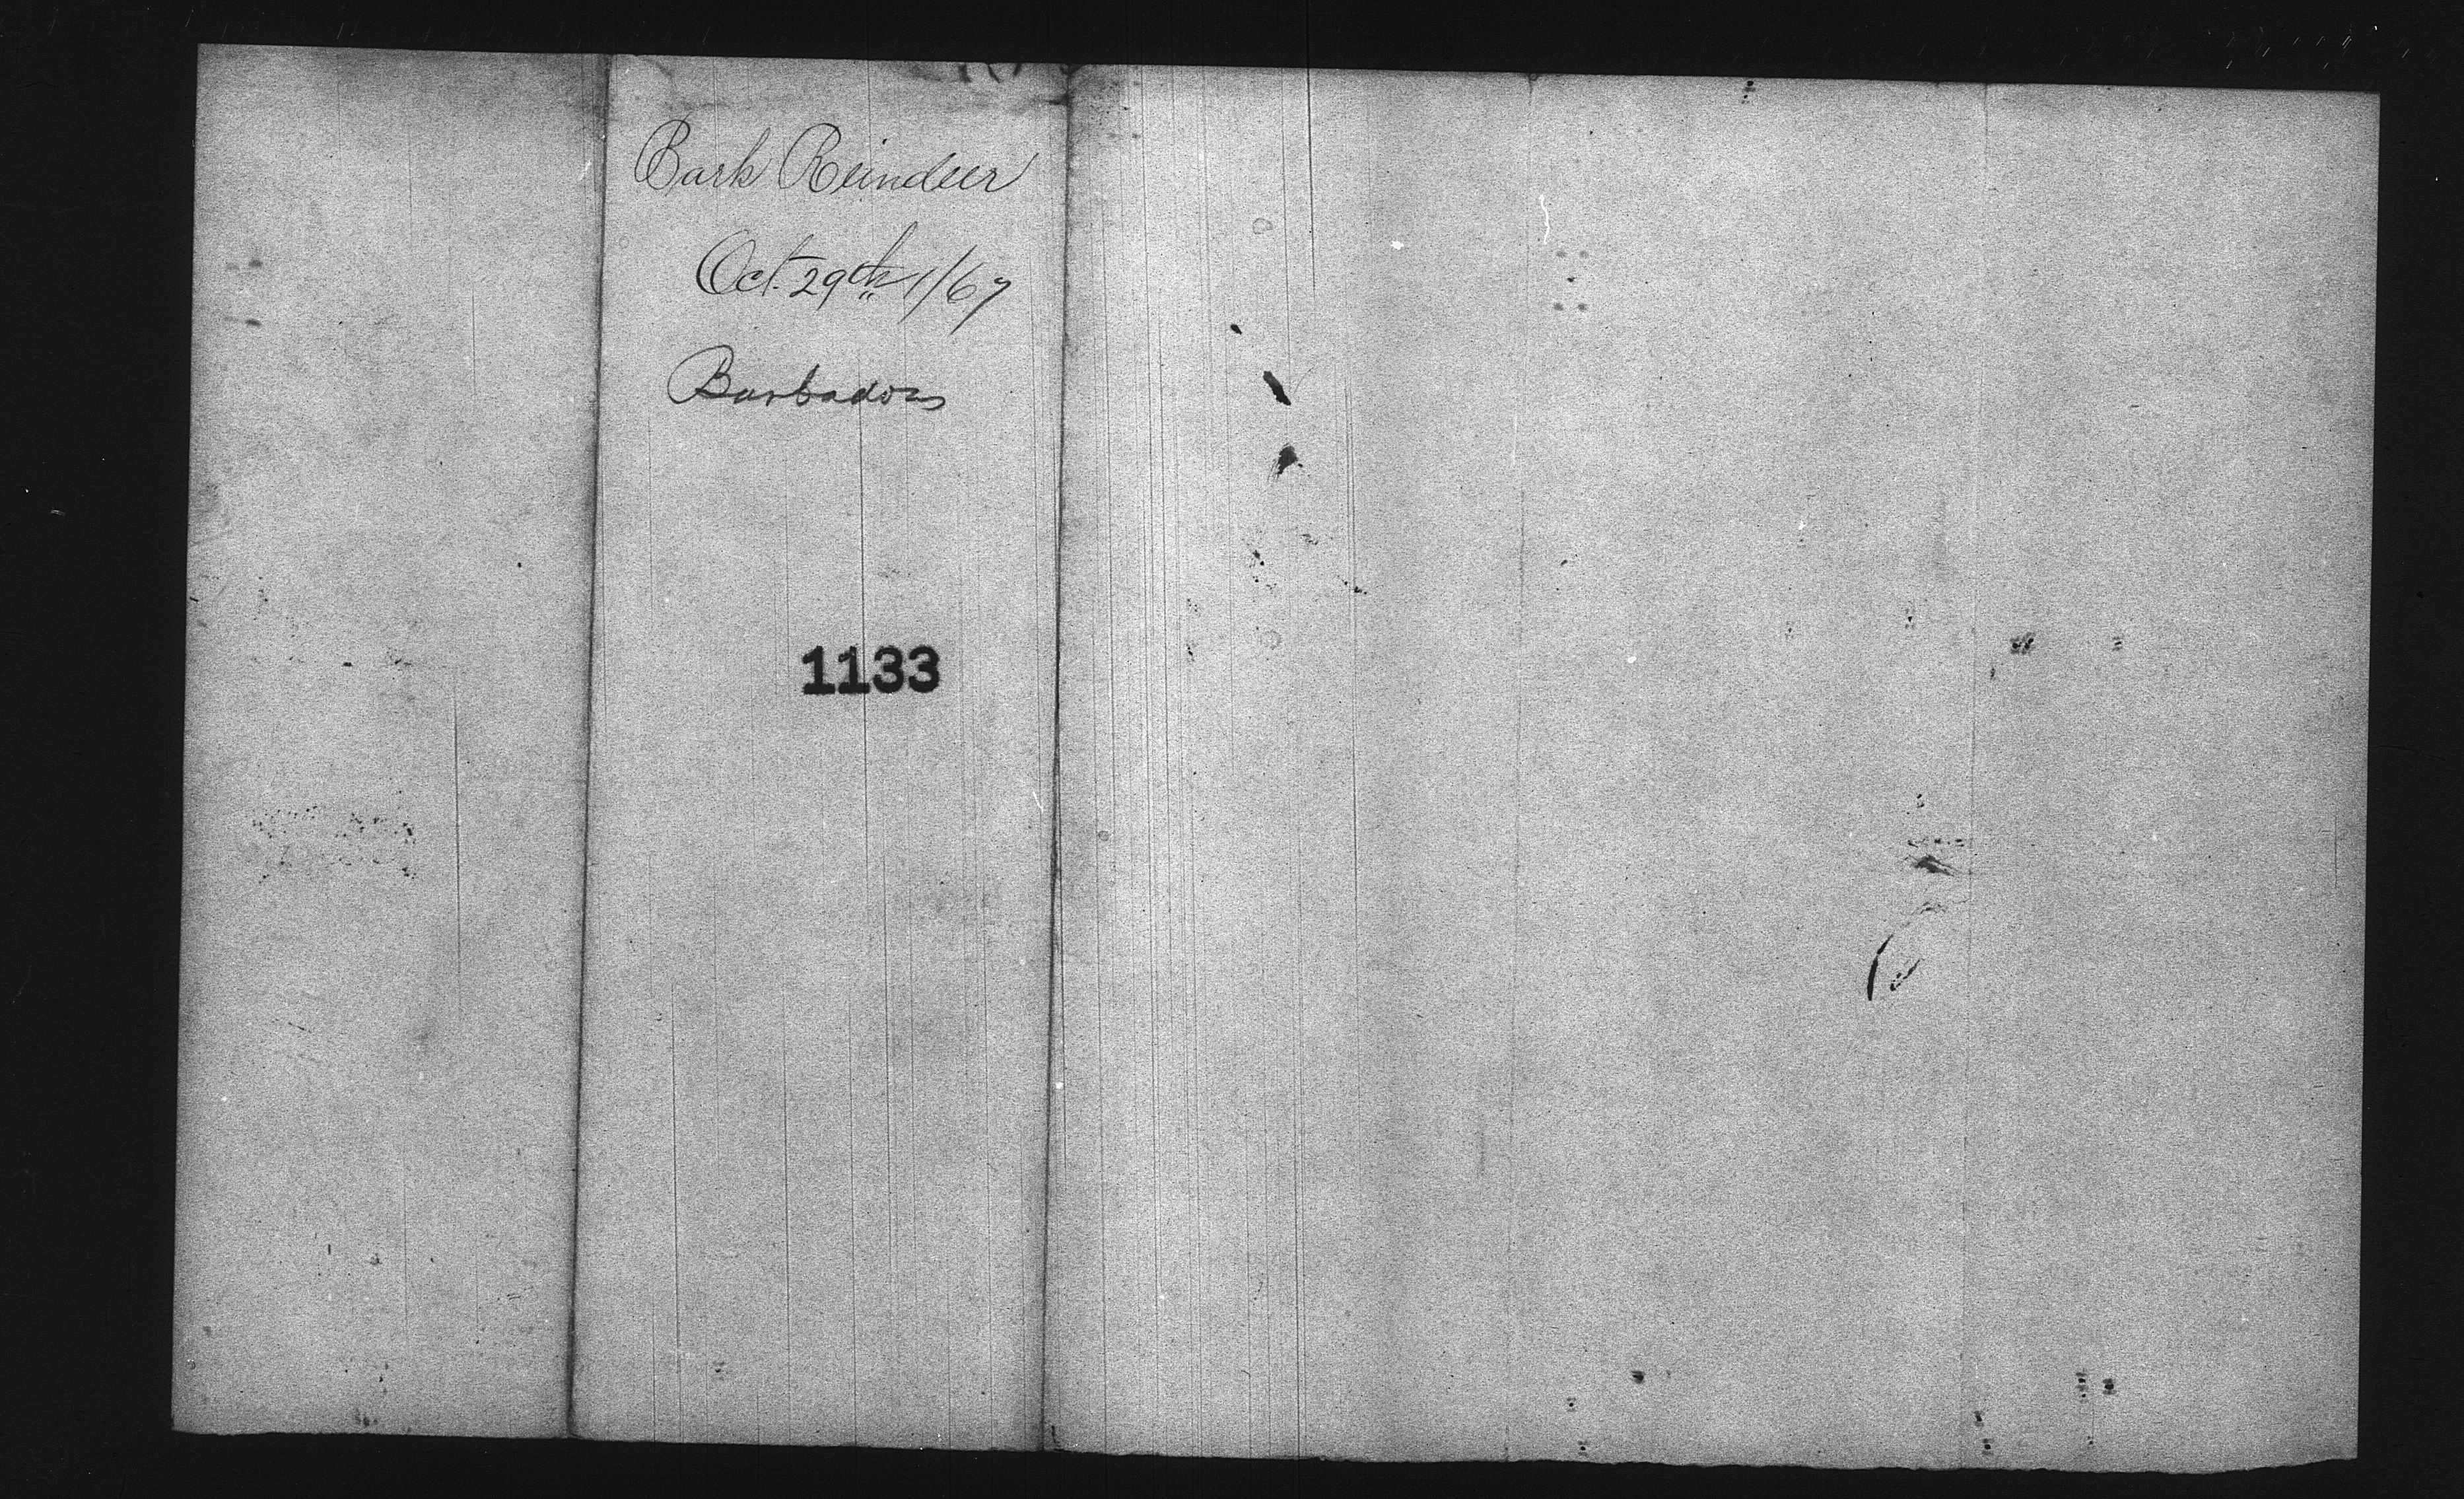 Bark Reindeer
Oct. 29th 1/67
Barbados
1133